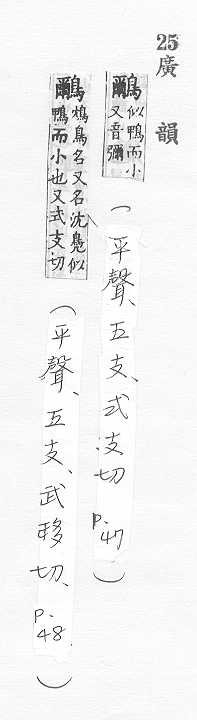 25
廣韻
鸍似鴨而小又音彌
（平聲、五支、式支切 p.47）
鸍鳥名又名沈鳧似鴨而小也又式支切
（平聲、五支、武移切、p.48.）